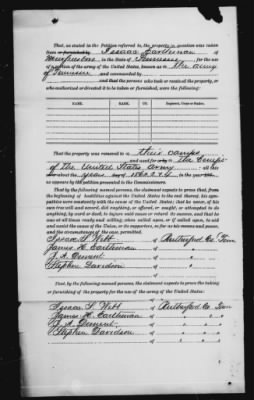 That, as stated in the Petition referred to, the property in question was taken
from or furnished by Isaac Eartheman of
Murfreesboro, in the State of Tennessee, for the use
of a portion of the army of the United States, known as the army
of Tennessee and commanded by
and that the persons who took or received the property, or
who authorized or directed it to be taken or furnished, were the following:
NAME. RANK. NAME. RANK. Regiment, Corps or Station.
That the property was removed to their camps
and used for the troops
of The United States Army
the years 1863 & 4, in the
as appears by the petition presented to the Commissioners.
That by the following named persons, the claimant expects to prove that, from
the beginning of hostilities against the United States to the end thereof, his sym-
pathies were constantly with the cause of the United States; that he never, of
his own free will and accord, did anything, or offered, or sought, or attempted to do
anything, by word or deed, to injure said cause or retard its success, and that he
was at all times ready and willing, when called upon, or if called upon, to aid
and assist the cause of the Union, or its supporters, so far as his means and power,
and the circumstances of the case, permitted:
Isaac S. Witt of Rutherford Co. Tenn
James H. Eartheman of " "
F. A. Clement of " "
Stephen Davidson of " "
That, by the following named persons, the claimant expects to prove the taking
or furnishing of the property for the use of the army of the United States:
Isaac S. Witt of Rutherford Co. Tenn
James H. Eartheman of " "
F. A. Clement of " "
Stephen Davidson of " "